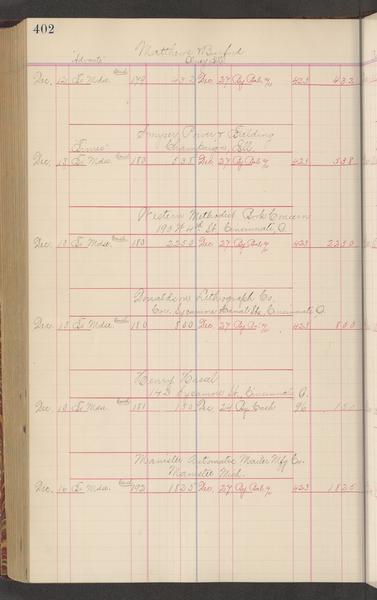 402
Matthews & Buford
"Advocate"
Dec. 12 To Mdse. 179 4 3 2 Dec 27 By Bal. 423 4 3 2
Power & Fielding
"Times" Champaign, Ill.
Dec. 13 To Mdse. 180 5 3 8 Dec. 27 By Bal. 423 5 3 8
Western Methodist Book Concern
190 W 4th St, Cincinnati, O.
Dec. 13 To Mdse. 180 22 50 Dec. 27 By Bal. 423 22 50
Donaldson Lithograph Co.
Cor. Sycamore & Canal Sts, Cincinnati, O.
Dec. 13 To Mdse. 180 8 00 Dec. 27 By 423 8 00
Henry
Sycamore St, Cincinnati O.
Dec. 13 To Mdse. 181 1 50 Dec 24 By Cash 96 1 50
Manistee Automatic Mailer Mfg Co.
Manistee Mich.
Dec. 16 To Mdse. 192 18 25 Dec. 27 By Bal. 423 18 25